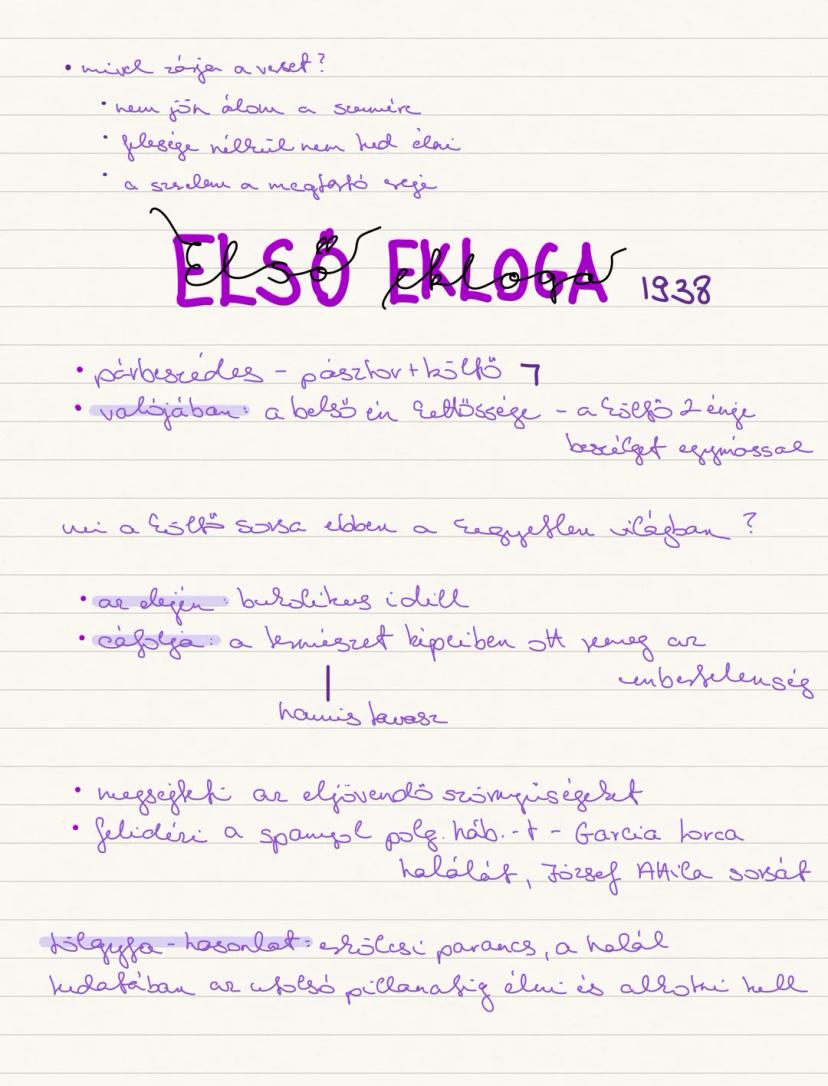 • mivel zárja a verset?
• nem jön álom a szemére
• felesége nélkül nem tud élni
• a szerelem a megtartó ereje
ELSŐ EKLOGA 1938
• párbeszédes - pásztor + költő ㄱ
• valójában: a belső én kettőssége - a költő 2 énje
beszélget egymással
mi a költő sorsa ebben a kegyetlen világban?
• az elején: bukolikus idill
• cáfolja: a természet képeiben ott remeg az
embertelenség
|
hamis tavasz
• megsejteti az eljövendő szörnyűségeket
• felidézi a spanyol polg. háb.-t - Garcia Lorca
halálát, József Attila sorsát
tölgyfa - hasonlat: erkölcsi parancs, a halál
tudatában az utolsó pillanatig élni és alkotni kell